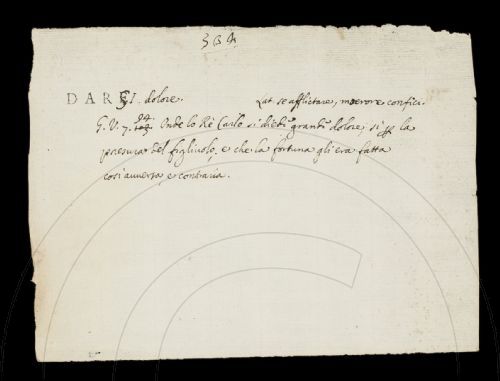 384
DARSI. dolore. Lat se afflictare, moerore confici.
G. V. 7. 94 Onde lo Rè Carlo si diede grande dolore, si per la
presura del figliuolo, e che la fortuna gli era fatta
così auuersa, e contraria.